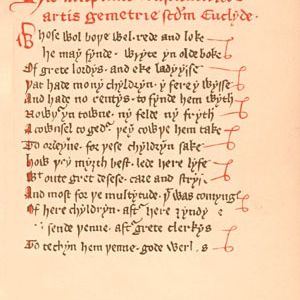 artis gemetrie scdm Euclyde.
Whose wol boþe wel rede and loke
he may fynde wryte yn olde boke
Of grete lordys and eke ladyysse
Þat hade mony chyldryn y fere y wysse
And hade no rentys to fynde hem wyth
Nowþer yn towne ny felde ny fryth
A cownsel to gedʳ þey cowþe hem take
To ordeyne for þese chyldryn sake
how þey myȝth best lede here lyfe
Wᵗ oute gret desese care and
And most for þe multytude þᵗ was
Of here chyldryn aftʳ here
sende þenne aftʳ grete clerkys
To techyn hem þenne gode